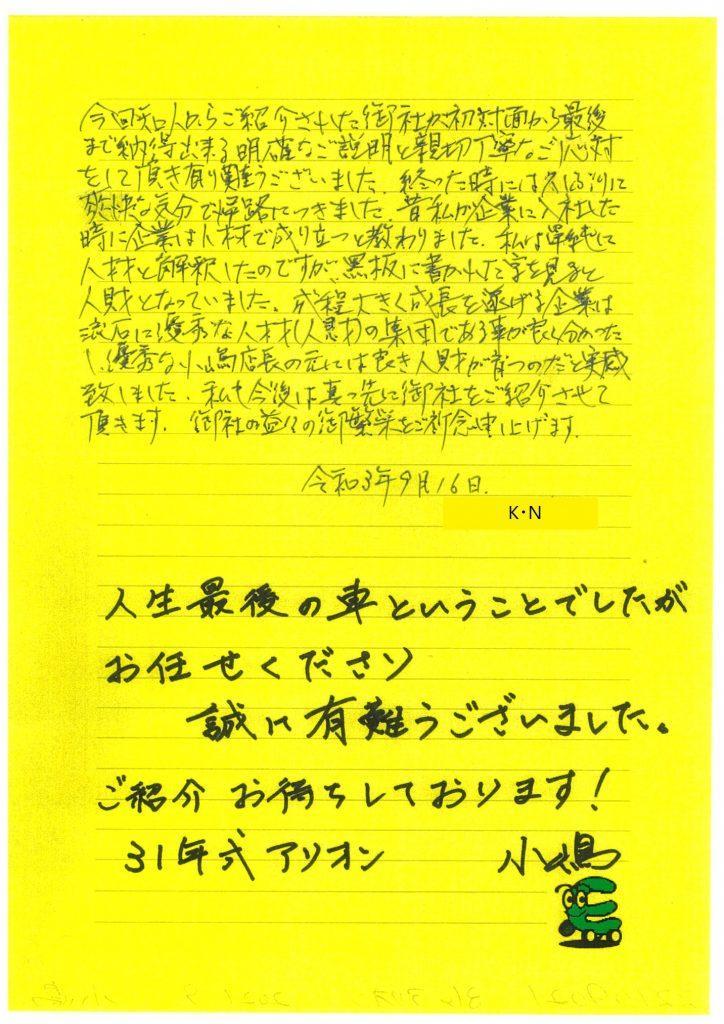 今回知人からご紹介された御社が初対面から最後
まで納得出来る明確なご説明と親切丁寧なご応対
をして頂き有り難うございました. 終った時には久し
爽快な気分で帰路につきました. 昔私が企業に入社した
時に企業は人材で成り立つと教わりました. 私は単純に
人材と解釈したのですが、黒板に書かれた字を見ると
人財となっていました。成程大きく成長を遂げる企業は
流石に優秀な人材の集団である事が良く分かった
優秀な小嶋店長の元には良き人財が育つのだと実感
致しました. 私も今後は真っ先に御社をご紹介させて
頂きます. 御社の益々の御繁栄をご祈念申上げます.
令和3年9月16日.
K・N
人生最後の車ということでしたが
お任せください
誠に有難うございました。
ご紹介 お待ちしております!
31年式 アリオン 小嶋